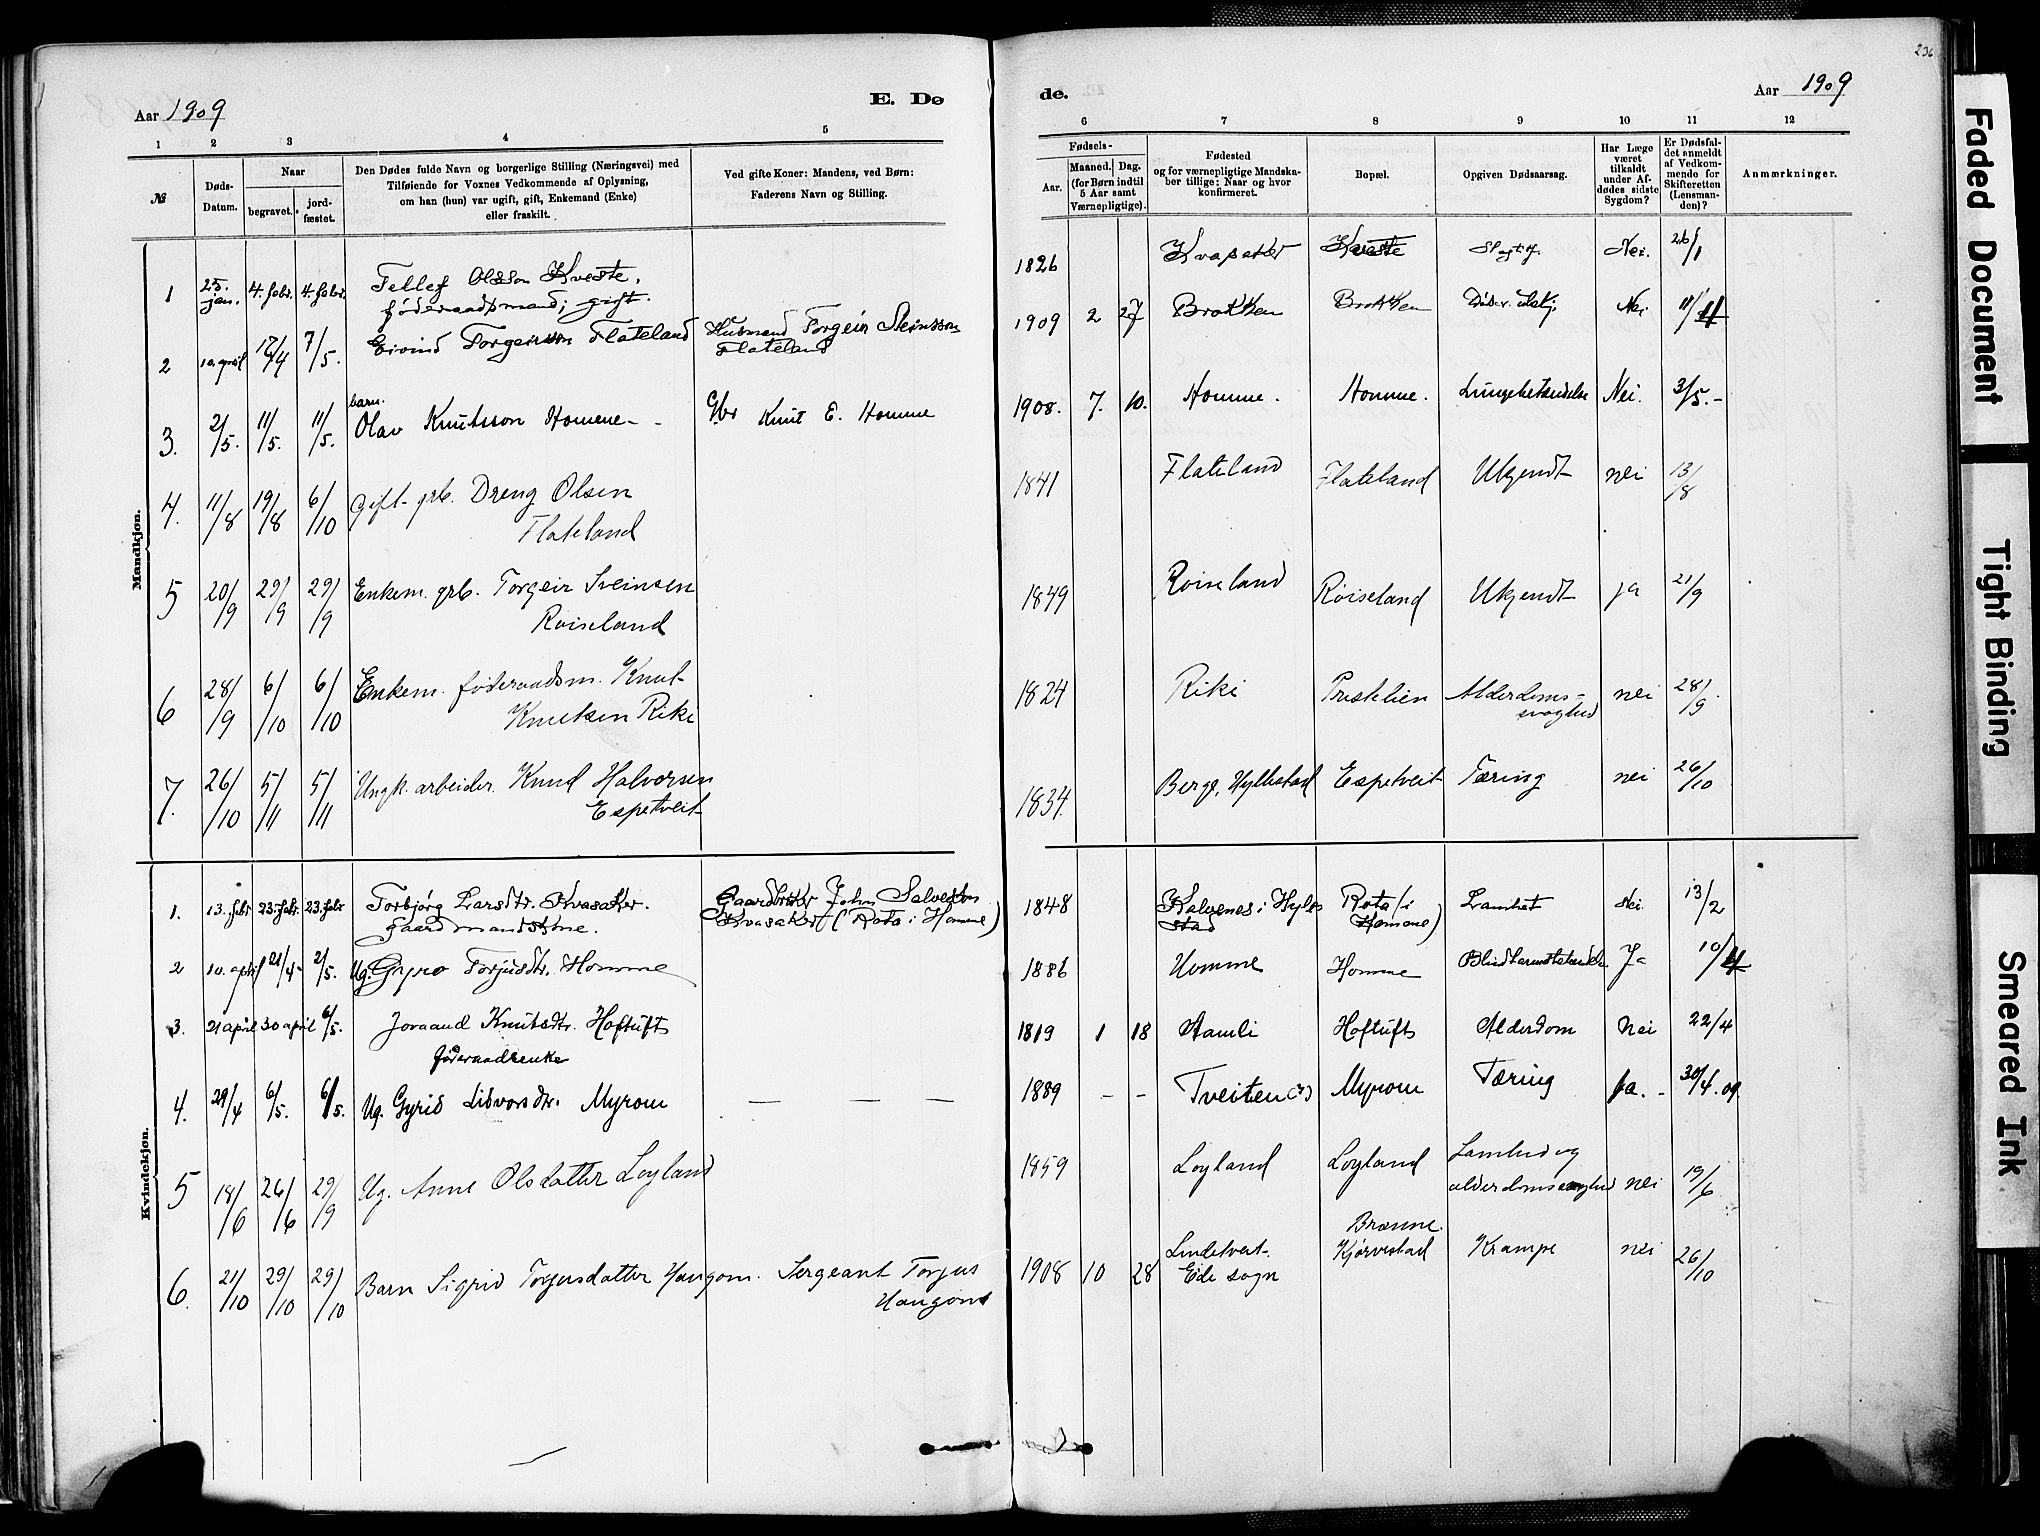 236
Aar 1909
E. Dø
de.
Aar 1909
1 2 3 4 5
6 7 8 9 10 11 12
№
Døds-
Datum.
Naar
begravet.
jord-
fæstet.
Den Dødes fulde Navn og borgerlige Stilling (Næringsvei) med
Tilføiende for Voxnes Vedkommende af Oplysning,
om han (hun) var ugift, gift, Enkemand (Enke)
eller fraskilt.
Ved gifte Koner: Mandens, ved Børn:
Faderens Navn og Stilling.
Fødsels-
Aar.
Maaned. Dag.
(for Børn indtil
5 Aar samt
Værnepligtige).
Fødested
og for værnepligtige Mandska-
ber tillige: Naar og hvor
konfirmeret.
Bopæl.
Opgiven Dødsaarsag.
Har Læge
været
tilkaldt
under Af-
dødes sidste
Sygdom?
Er Dødsfal-
det anmeldt
af Vedkom-
mende for
Skifteretten
(Lensman-
den)?
Anmærkninger.
Mandkjøn.
1 25. jan. 4. febr. 4. febr. Tellef Olsson Kveste,
føderaadsmand; gift.
1826 Kvasaker Kveste Nei. 26/1
2 10. april 17/4 7/5. Eivind Torgeirsson Flateland Husmand Torgeir Steinsson
Flateland
1909 2 27 Brokken Brokken Nei 11/4
barn.
3. 2/5. 11/5. 11/5. Olav Knutsson Homme - - Gbr Knut E. Homme
1908. 7. 10. Homme. Homme. Lungebetændelse Nei. 3/5.-
4. 11/8 19/8 6/10 Gift grb. Dreng Olsen
Flateland
1841 Flateland Flateland Ukjendt nei 13/8
5 20/9 29/9 29/9 Enkem. grb. Torgeir Sveinsen
Røiseland
1849 Røiseland Røiseland Ukjendt ja 21/9
6 28/9 6/10 6/10 Enkem. føderaadsm. Knut
Knutsen Riki
1824 Riki Prestelien Alderdoms-
svaghed nei 28/9.
7. 26/10 5/11 5/11 Ungk. arbeider Knud Halvorsen
Espetveit
1834. Berge, Hyllestad Espetveit Tæring nei 26/10
Kvindekjøn.
1. 13. febr 23. febr. 23. febr Torbjørg Larsdtr. Kvasaker.
Gaardmandskone.
Gaardbruker John Salvesson
Kvasaker (Rota i Homme)
1848 i Hyle-
stad Rota (i
Homme) Lamhet Nei. 13/2
2 10. april 21/4- 2/5. Ug. Gyro Torjusdtr. Homme
1886 Homme Homme Blindtarmbetændelse Ja 10/4
3. 21 april 30 april 6/5. Joraand Knutsdtr. Hoftuft
føderaadsenke
1819 1 18 Aamli Hoftuft Alderdom Nei 22/4
4. 29/4 6/5. 6/5. Ug. Gyrid Lidvorsdtr. Myrom — — —
1889 - - Tveiten (?) Myrom Tæring ja. - 30/4. 09.
5 18/6 26/6 29/9 Ug. Anne Olsdatter Løyland
1859 Løyland Løyland Lamhed og
alderdomssvaghed nei 19/6
6. 21/10 29/10 29/10 Barn Sigrid Torjusdatter Haugom. Sergeant Torjus
Haugom
1908 10 28 Lindtveit-
Eide sogn Brænne.
Kjørvestad Krampe nei 26/10
Faded Document
Tight Binding
Smeared Ink